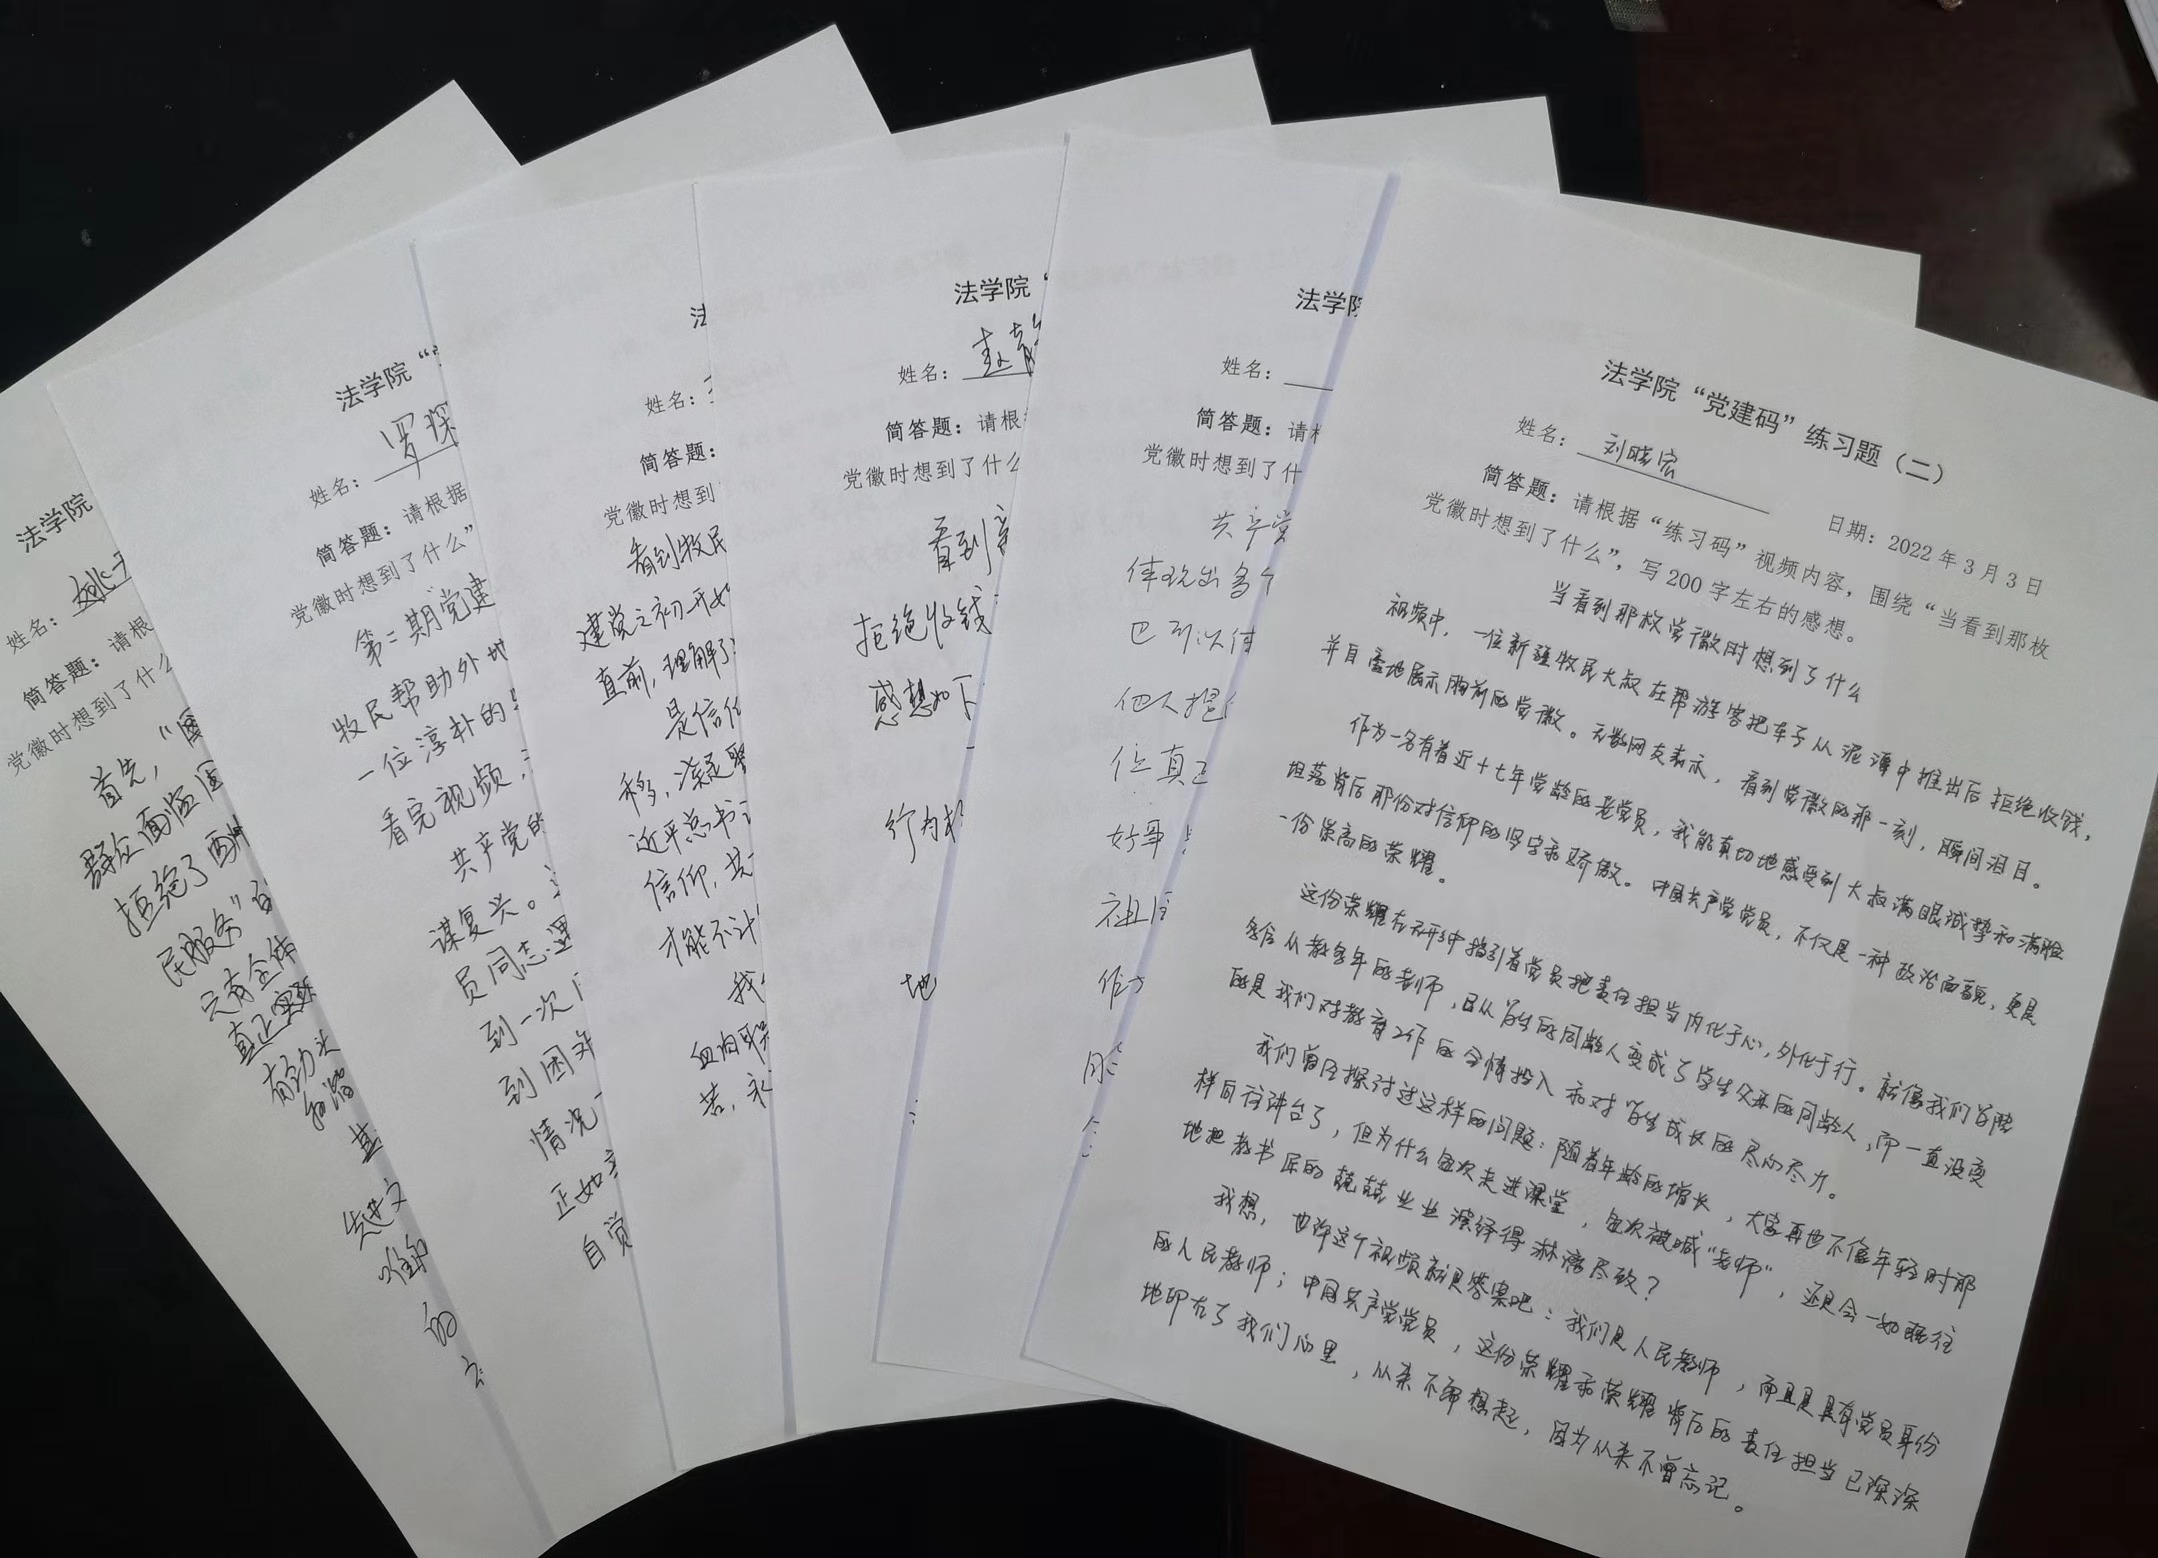 法学院
姓名：
简答题：请根
党徽时想到了什么
首先，
群众面临困
拒绝了酬
民服务”
只有全体
真正
有劲头
的
法学院“
姓名：罗琛
简答题：请根据
党徽时想到了什么”
第二期党建
牧民帮助外地
一位淳朴的
看完视频，
共产党的
谋复兴。
员同志遇
到一次
到困难
情况一
正如
自觉
法
姓名：
简答题：
党徽时想到
看到牧民
建党之初开始
直前，理解了
是信仰
移，凝聚
近平总书记
信仰，共
才能不计
我
血肉联
苦，永
法学院“
姓名：赵
简答题：请根
党徽时想到了什么
看到
拒绝收钱
感想如下
行为
地
法学院
姓名：
简答题：请根
党徽时想到了什
共产党
体现出多个
已可以体
他人提
位真正
好事
祖国
作为
法学院“党建码”练习题（二）
姓名：刘晓宏 日期：2022年3月3日
简答题：请根据“练习码”视频内容，围绕“当看到那枚
党徽时想到了什么”，写200字左右的感想。
当看到那枚党徽时想到了什么
视频中，一位新疆牧民大叔在帮游客把车子从泥潭中推出后拒绝收钱，
并自豪地展示胸前的党徽。无数网友表示，看到党徽的那一刻，瞬间泪目。
作为一名有着近十七年党龄的老党员，我能真切地感受到大叔满眼诚挚和满脸
坦荡背后那份对信仰的坚守和骄傲。中国共产党党员，不仅是一种政治面貌，更是
一份崇高的荣耀。
这份荣耀在无形中指引着党员把责任担当内化于心，外化于行。就像我们学院
多位从教多年的老师，已从学生的同龄人变成了学生父母的同龄人，而一直没变
的是我们对教育工作的全情投入和对学生成长的尽心尽力。
我们曾经探讨过这样的问题：随着年龄的增长，大家再也不像年轻时那
样向往讲台了，但为什么每次走进课堂，每次被喊“老师”，还是会一如既往
地把教书匠的兢兢业业演绎得淋漓尽致？
我想，也许这个视频就是答案吧：我们是人民教师，而且是具有党员身份
的人民教师；中国共产党党员，这份荣耀和荣耀背后的责任担当已深深
地印在了我们心里，从来不需想起，因为从来不曾忘记。